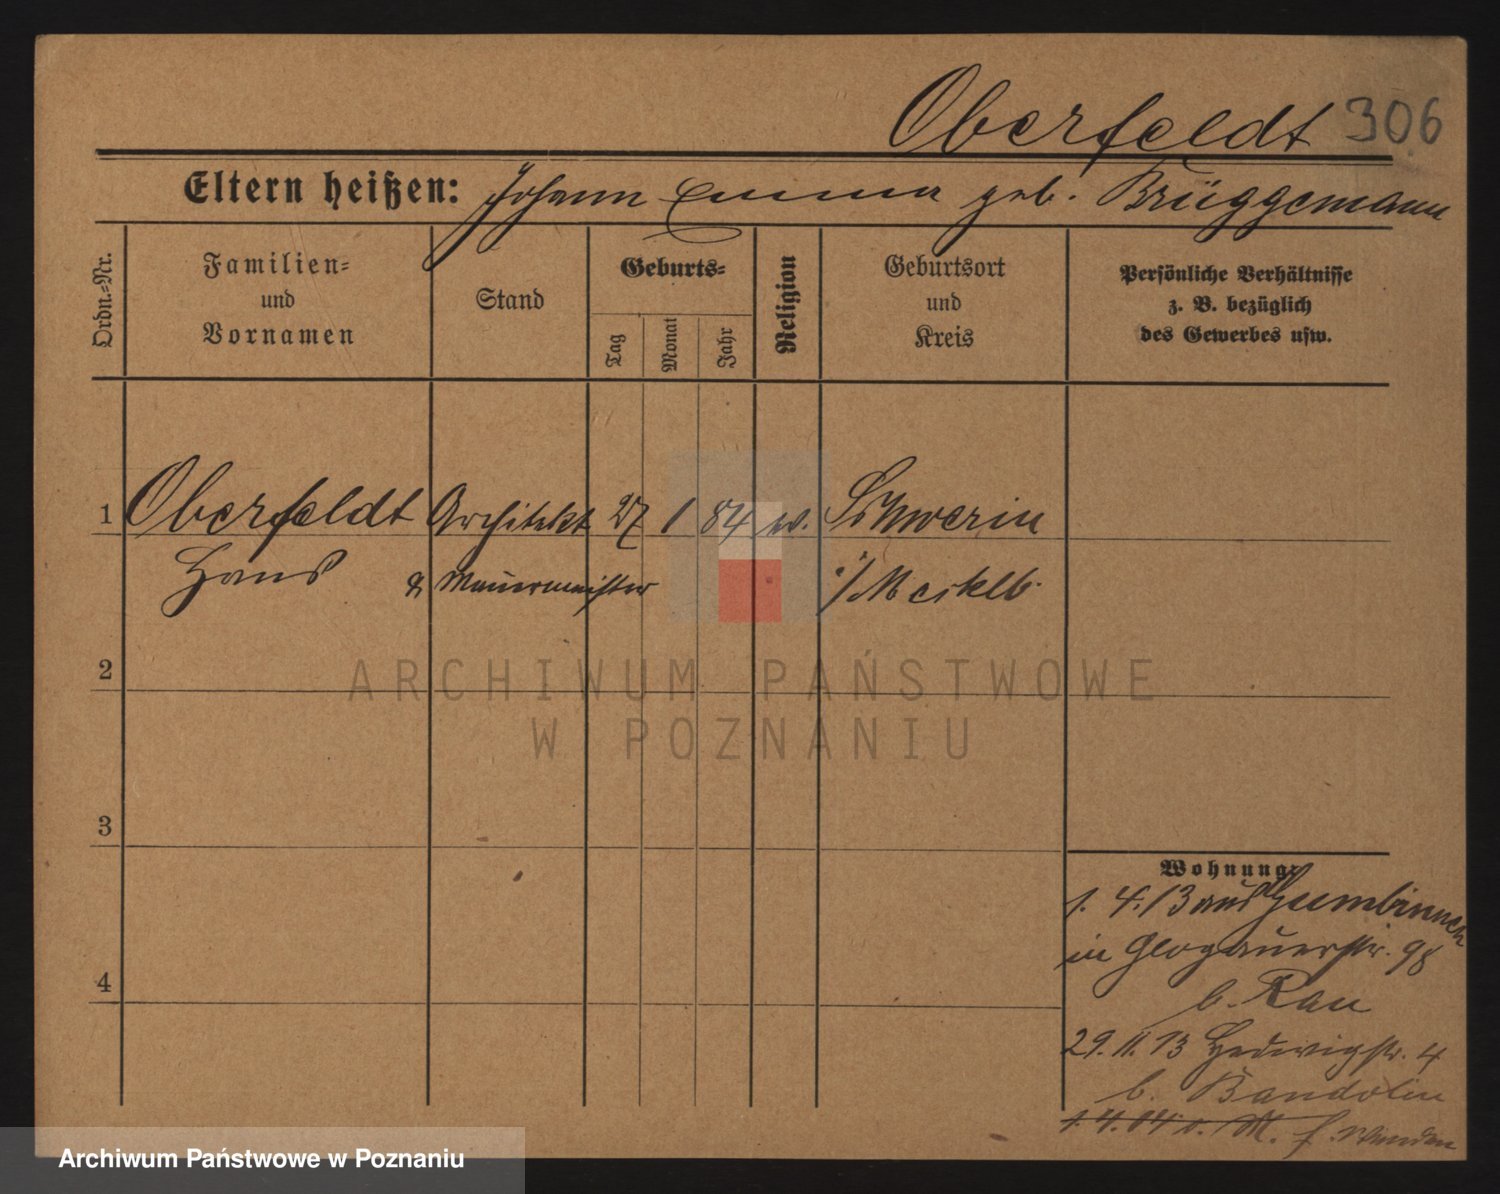 Oberfeldt 306
Eltern heißen: Johann Emma geb. Brüggemann
Ordn.=Nr.
Familien=
und
Vornamen
Stand
Geburts=
Tag
Monat
Jahr
Religion
Geburtsort
und
Kreis
Persönliche Verhältnisse
z. B. bezüglich
des Gewerbes usw.
1 Oberfeldt Architekt 27 1 84 Schwerin
Hans & Mauermeister i/Mecklb.
2
3
4
Wohnung:
1. 4. 13 aus Gumbinnen
in Glogauerstr. 98
b. Rau
29. 11. 13 Hedwigstr. 4
b. Bandolin
ARCHIWUM PAŃSTWOWE
W POZNANIU
Archiwum Państwowe w Poznaniu